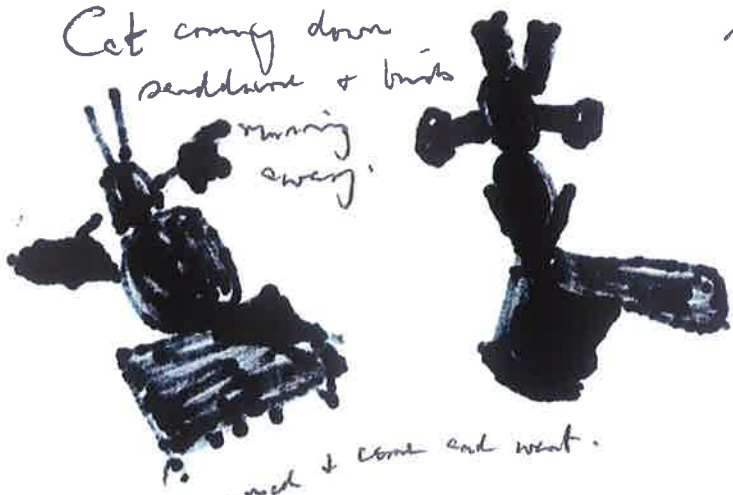 Cat coming down
sanddune + birds
running
away.
+ come and went.